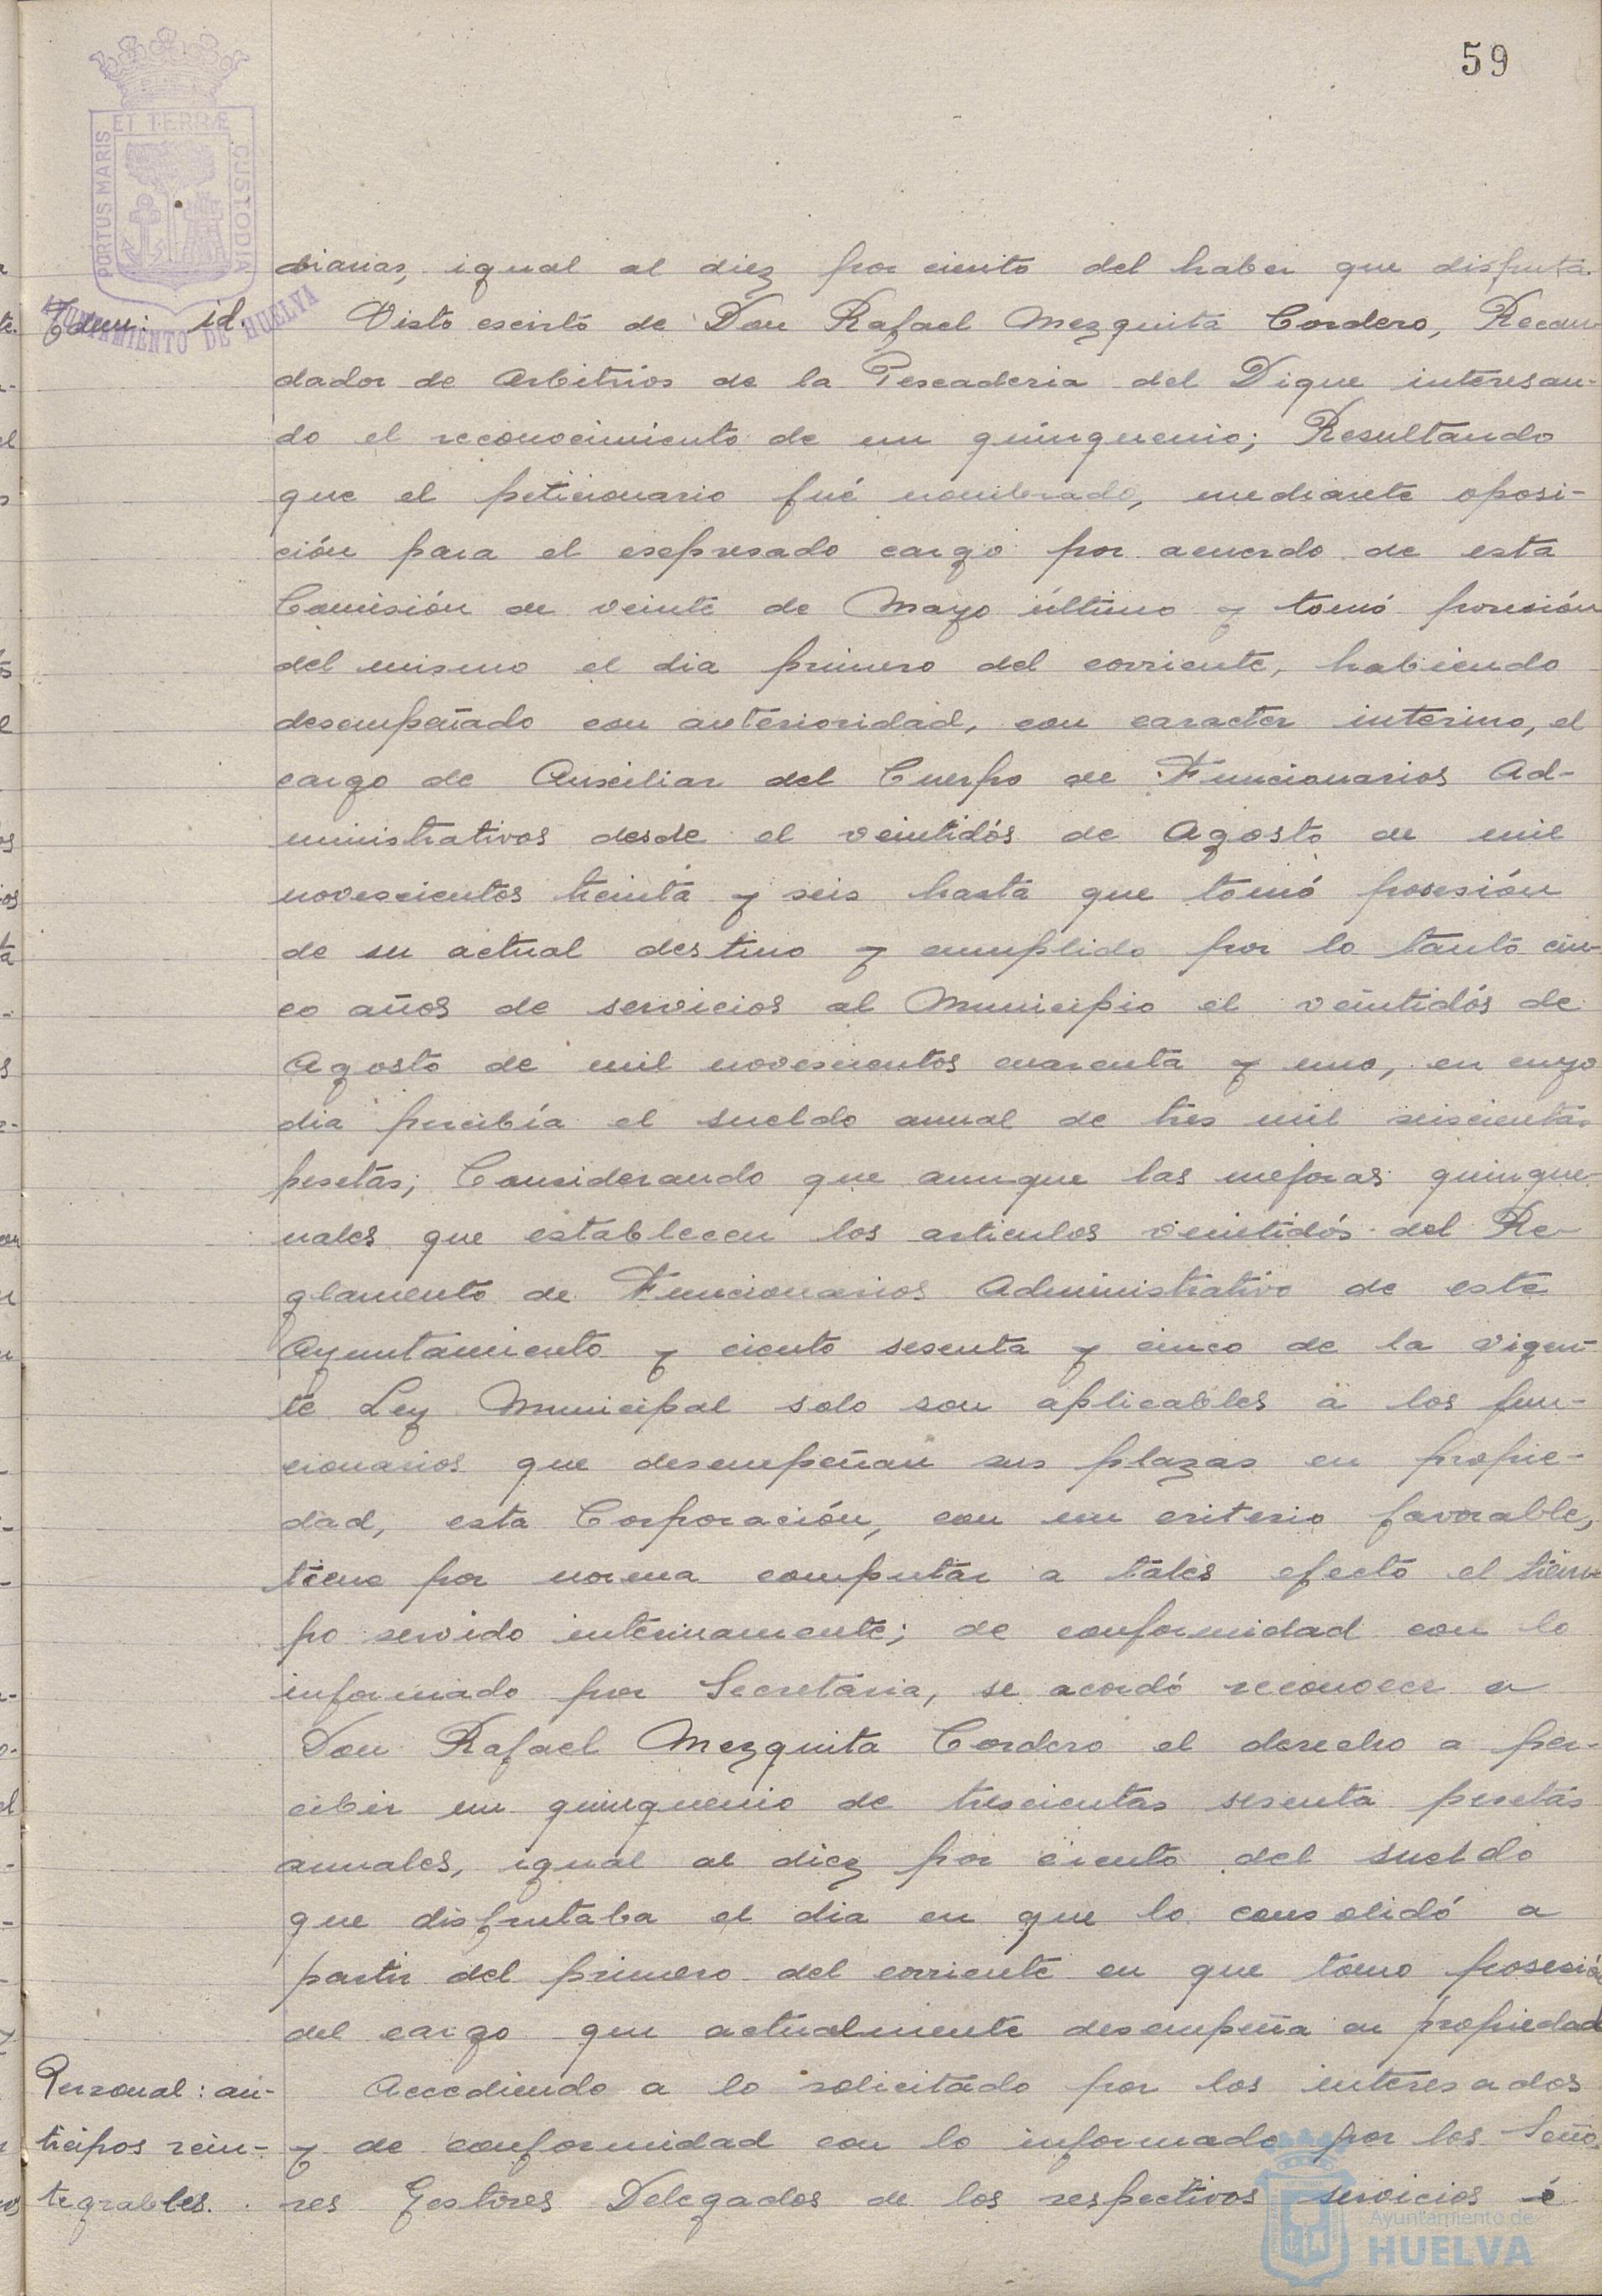 59
PORTUS MARIS ET TERRÆ CUSTODIA
AYUNTAMIENTO DE HUELVA
diarias, igual al diez por ciento del haber que disfruta.
Idem: id.
Visto escrito de Don Rafael Mezquita Cordero, Recau-
dador de Arbitrios de la Pescaderia del Dique interesan-
do el reconocimiento de un quinquenio; Resultando
que el peticionario fué nombrado, mediante oposi-
ción para el esepresado cargo por acuerdo de esta
Comisión en veinte de Mayo último y tomó posesión
del mismo el dia primero del corriente, habiendo
desempeñado con anterioridad, con caracter interino, el
cargo de Auxiliar del Cuerpo de Funcionarios Ad-
ministrativos desde el veintidós de Agosto de mil
novescientos treinta y seis hasta que tomó posesión
de su actual destino y cumplido por lo tanto cin-
co años de servicios al Municipio el veintidós de
Agosto de mil novescientos cuarenta y uno, en cuyo
dia percibía el sueldo anual de tres mil seiscientas
pesetas; Considerando que aunque las mejoras quinque-
nales que establecen los articulos veintidós del Re-
glamento de Funcionarios Administrativo de este
Ayuntamiento y ciento sesenta y cinco de la vigen-
te Ley Municipal solo son aplicables a los fun-
cionarios que desempeñan sus plazas en propie-
dad, esta Corporación, con un criterio favorable,
tiene por norma computar a tales efecto el tiem-
po servido interinamente; de conformidad con lo
informado por Secretaria, se acordó reconocer a
Don Rafael Mezquita Cordero el derecho a per-
cibir un quinquenio de trescientas sesenta pesetas
anuales, igual al diez por ciento del sueldo
que disfrutaba el dia en que lo consolidó a
partir del primero del corriente en que tomo posesión
del cargo que actualmente desempeña en propiedad
Personal: an-
ticipos rein-
tegrables.
Accediendo a lo solicitado por los interesados
y de conformidad con lo informado por los Seño-
res Gestores Delegados de los respectivos servicios é
Ayuntamiento de
HUELVA